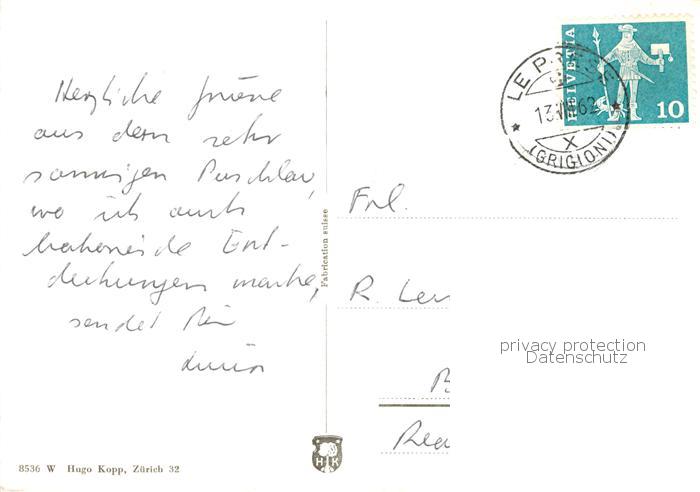 Herzliche Grüsse
aus dem sehr
sonnigen Puschlav,
wo ich auch
botanische Ent-
deckungen mache,
sendet Dir
Frl.
R.
Fabrication suisse
HELVETIA
10
LE PRESE
13.VIII.62
X
(GRIGIONI)
privacy protection
Datenschutz
H K
8536 W Hugo Kopp, Zürich 32